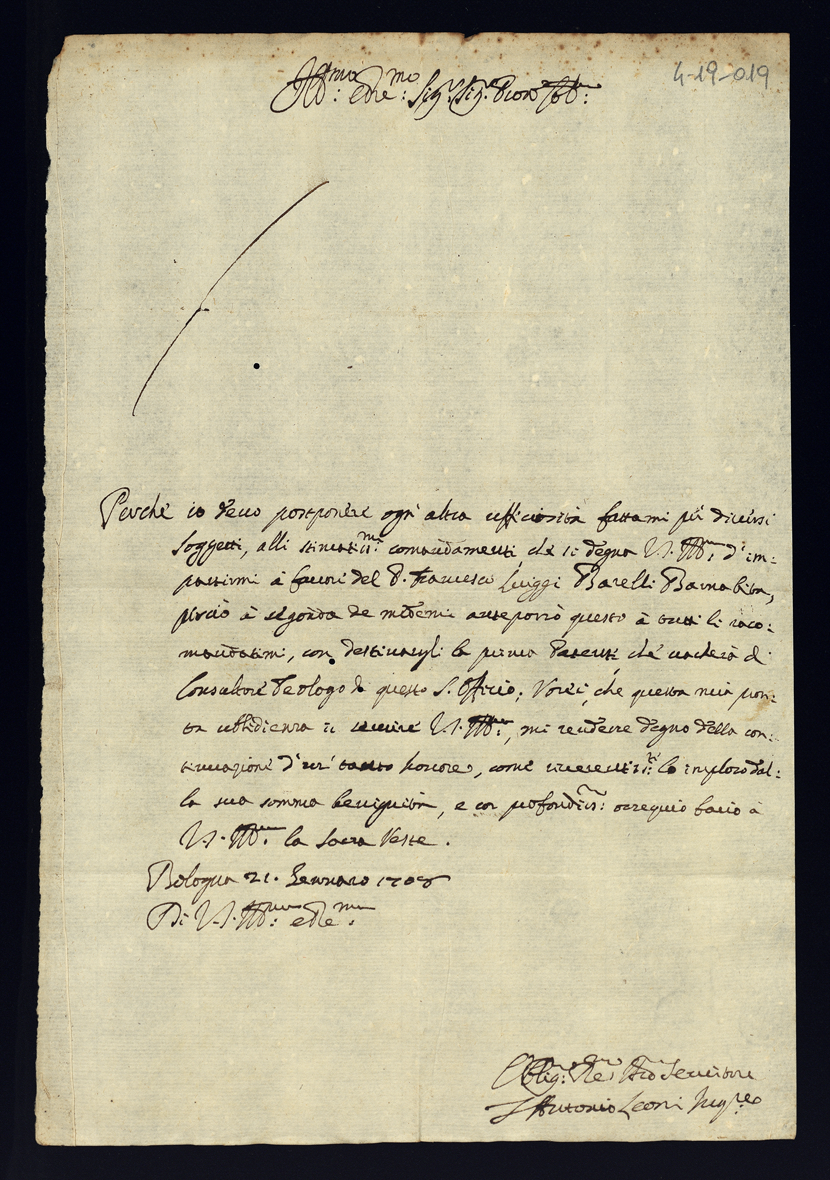 4-19-019
Ill:mo e Re:mo Sig.r Sig.r Pron Col:mo
Perche io devo posponere ogn'altra ufficiosità fattami per diversi
soggetti, alli stimatis:mi comandamenti che si degna V.S. Ill:ma d'im-
partirmi à favore del P. Francesco Luiggi Barelli Barnabita,
perciò à segonda de medemi anteporrò questo à tutti li raco-
mandatimi, con destinargli la prima Patente che vacherà di
Consultore Teologo di questo S. Officio; Vorei, che questa mia pron-
ta ubbidienza in servire V.S. Ill:ma, mi rendesse degno della con-
tinuazione d'un tanto honore, come riverentis:te le imploro dal-
la sua somma benignità, e con profondis:mo ossequio bacio à
V.S. Ill:ma la Sacra Veste.
Bologna 21. Gennaro 1708
Di V.S. Ill:ma e Re:ma
Oblig:mo Servitore
F. Antonio Leoni Inq:re